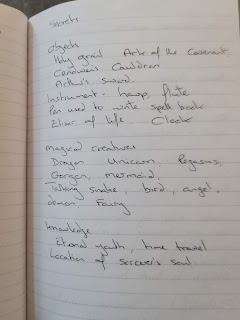 Secrets
Objects
Holy grail Ark of the Covenant
Ceridwen's Cauldron
Arthur's Sword
Instrument - harp, flute
Pen used to write spell book
Elixir of life Clock
Magical creatures
Dragon Unicorn, Pegasus,
Gorgon, mermaid,
talking snake, bird, angel,
demon Fairy
knowledge
Eternal youth, time travel
Location of sorcerer's soul